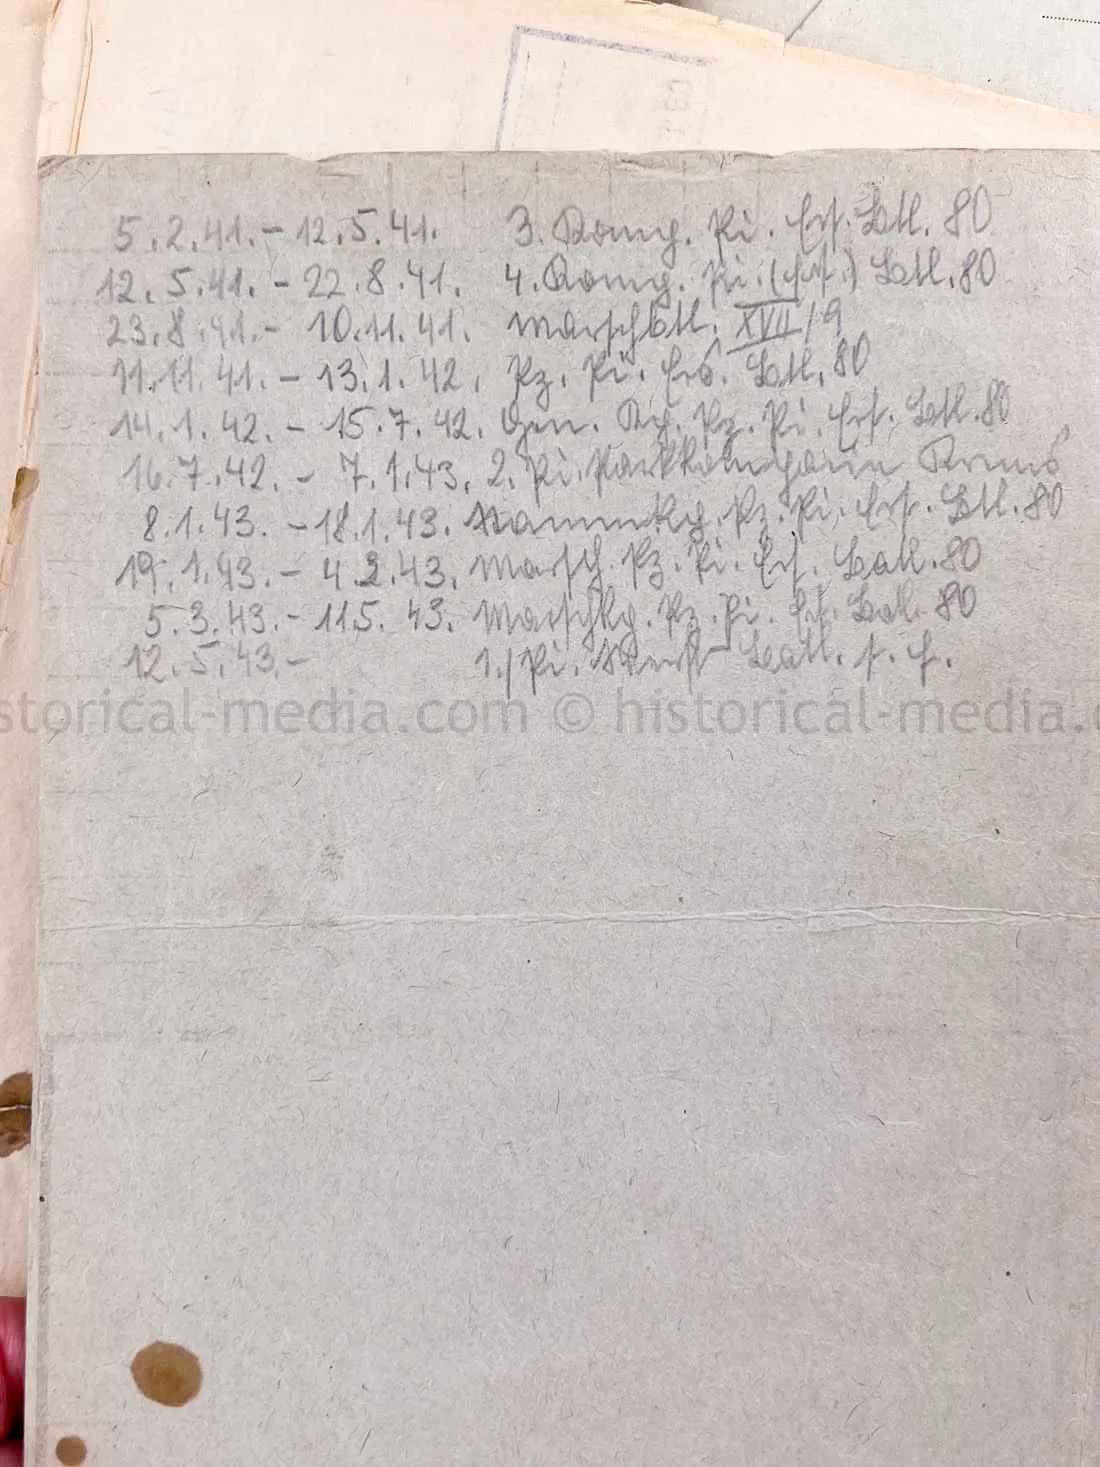 5.2.41. - 12.5.41. 3. Komp. Pi. Ers. Btl. 80
12.5.41. - 22.8.41. 4. Komp. Pi. (Ers.) Btl. 80
23.8.41. - 10.11.41. Marschbtl. XVII/9
11.11.41. - 13.1.42. Pz. Pi. Ers. Btl. 80
14.1.42. - 15.7.42. Gen. Kp. Pz. Pi. Ers. Btl. 80
16.7.42. - 7.1.43. 2. Pi. Parkkompanie Krems
8.1.43. - 18.1.43. Stammkp. Pz. Pi. Ers. Btl. 80
19.1.43. - 4.2.43. Marsch. Pz. Pi. Ers. Batl. 80
5.3.43. - 11.5.43. Marschkp. Pz. Pi. Ers. Batl. 80
12.5.43. - 1./Pi. Batl.
historical-media.com © historical-media.c